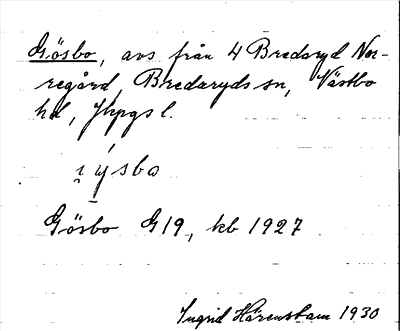 Gösbo, avs från 4 Bredaryd Nor-
regård, Bredaryds sn, Västbo
hd, Jkpgs l.
Gösbo G19, kb 1927
Ingrid Härenstam 1930